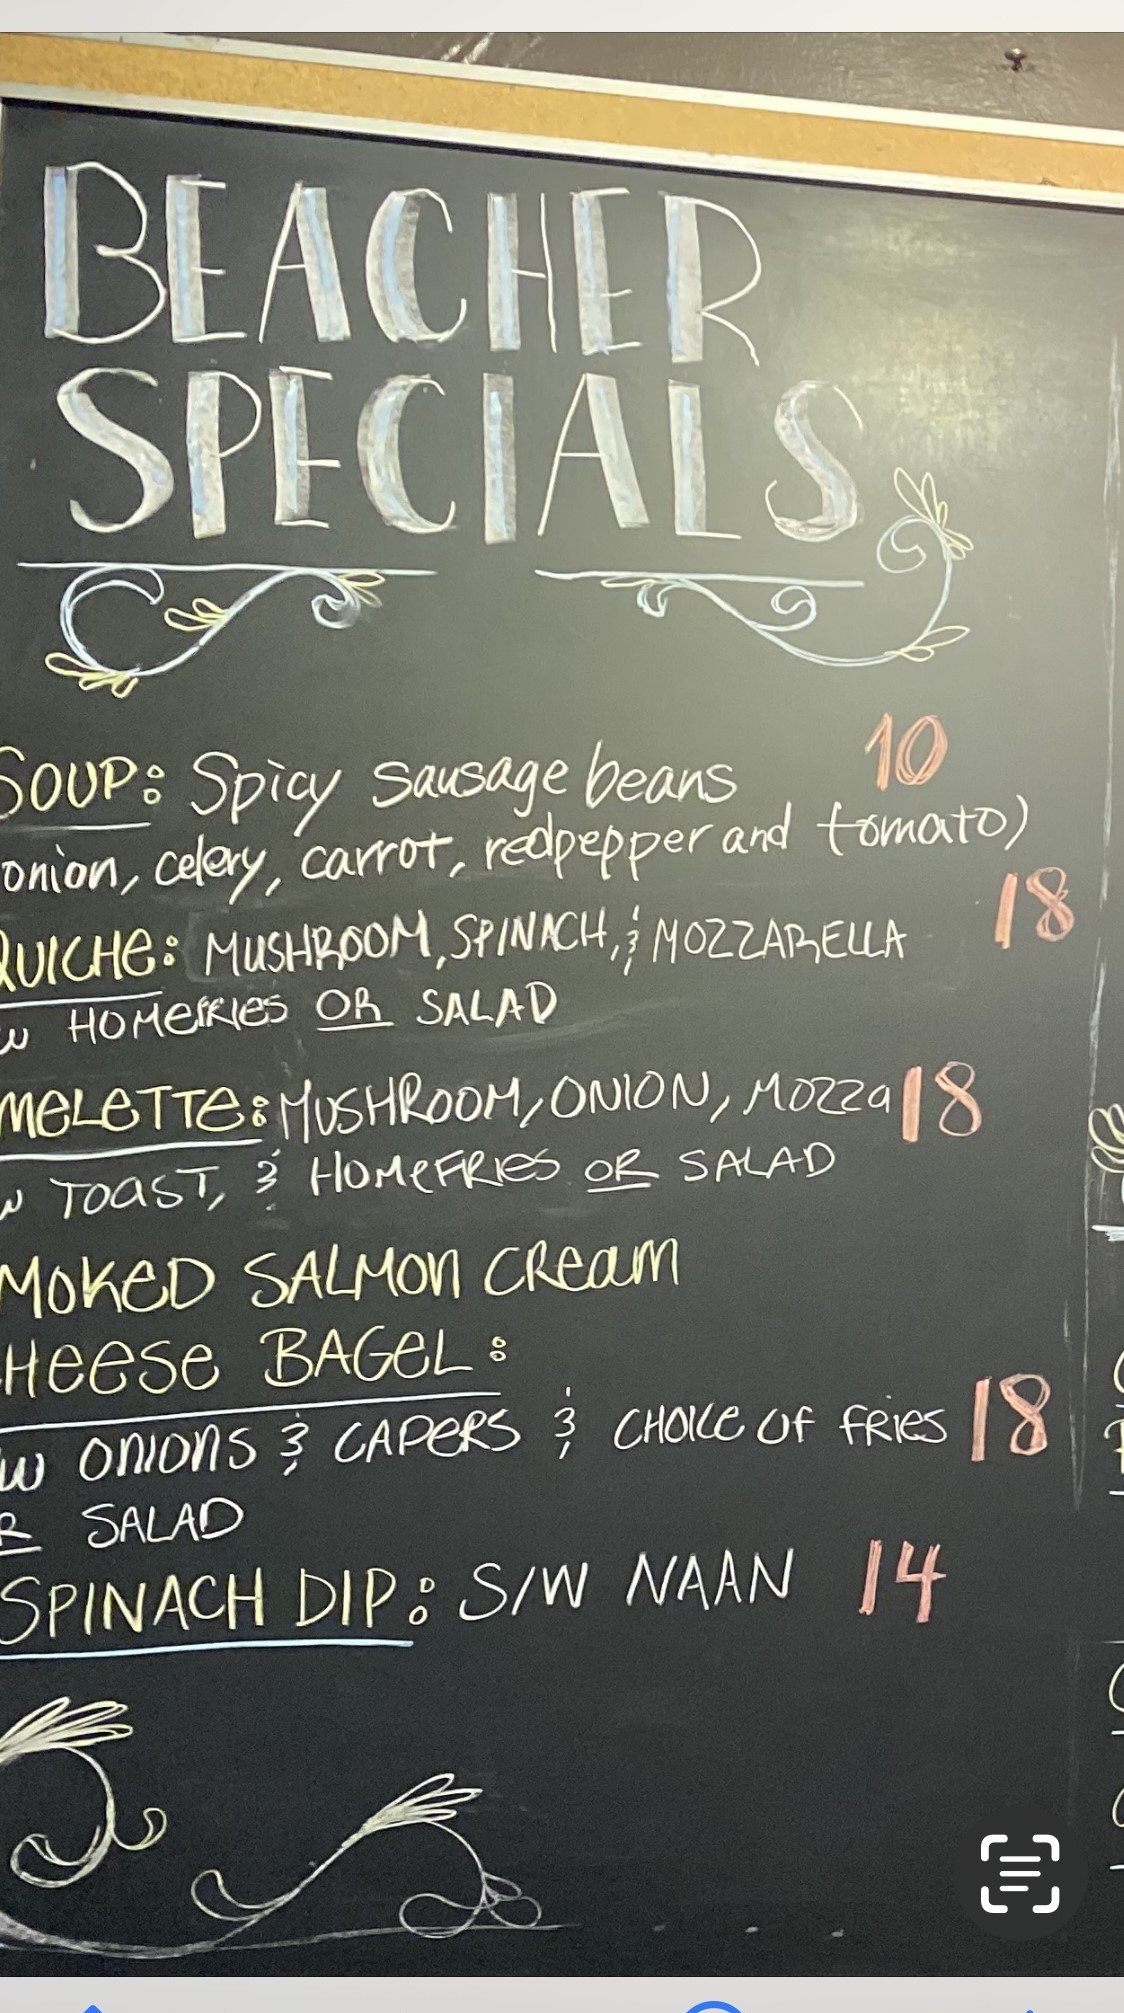 BEACHER
SPECIALS
SOUP: Spicy sausage beans 10
onion, celery, carrot, redpepper and tomato)
QUICHE: MUSHROOM, SPINACH, & MOZZARELLA 18
W HOMEFRIES OR SALAD
MELETTE: MUSHROOM, ONION, MOZZA 18
W TOAST, & HOMEFRIES OR SALAD
MOKED SALMON CREAM
HEESE BAGEL:
W ONIONS & CAPERS & CHOICE OF FRIES 18
R SALAD
SPINACH DIP: S/W NAAN 14